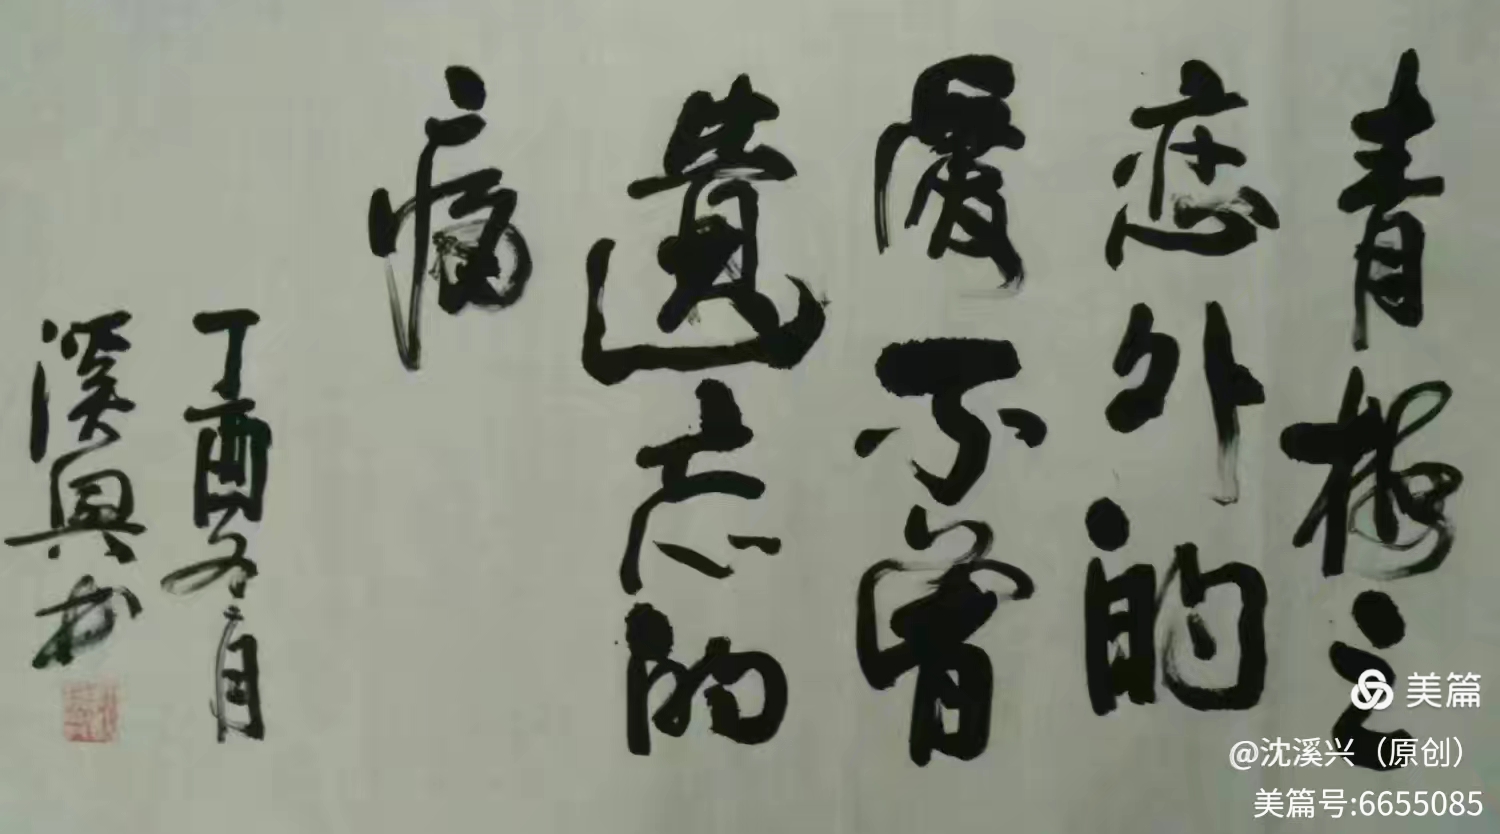 青梅之
恋外的
爱不曾
遗忘的
痛
丁酉冬月
溪兴书
美篇
@沈溪兴（原创）
美篇号:6655085